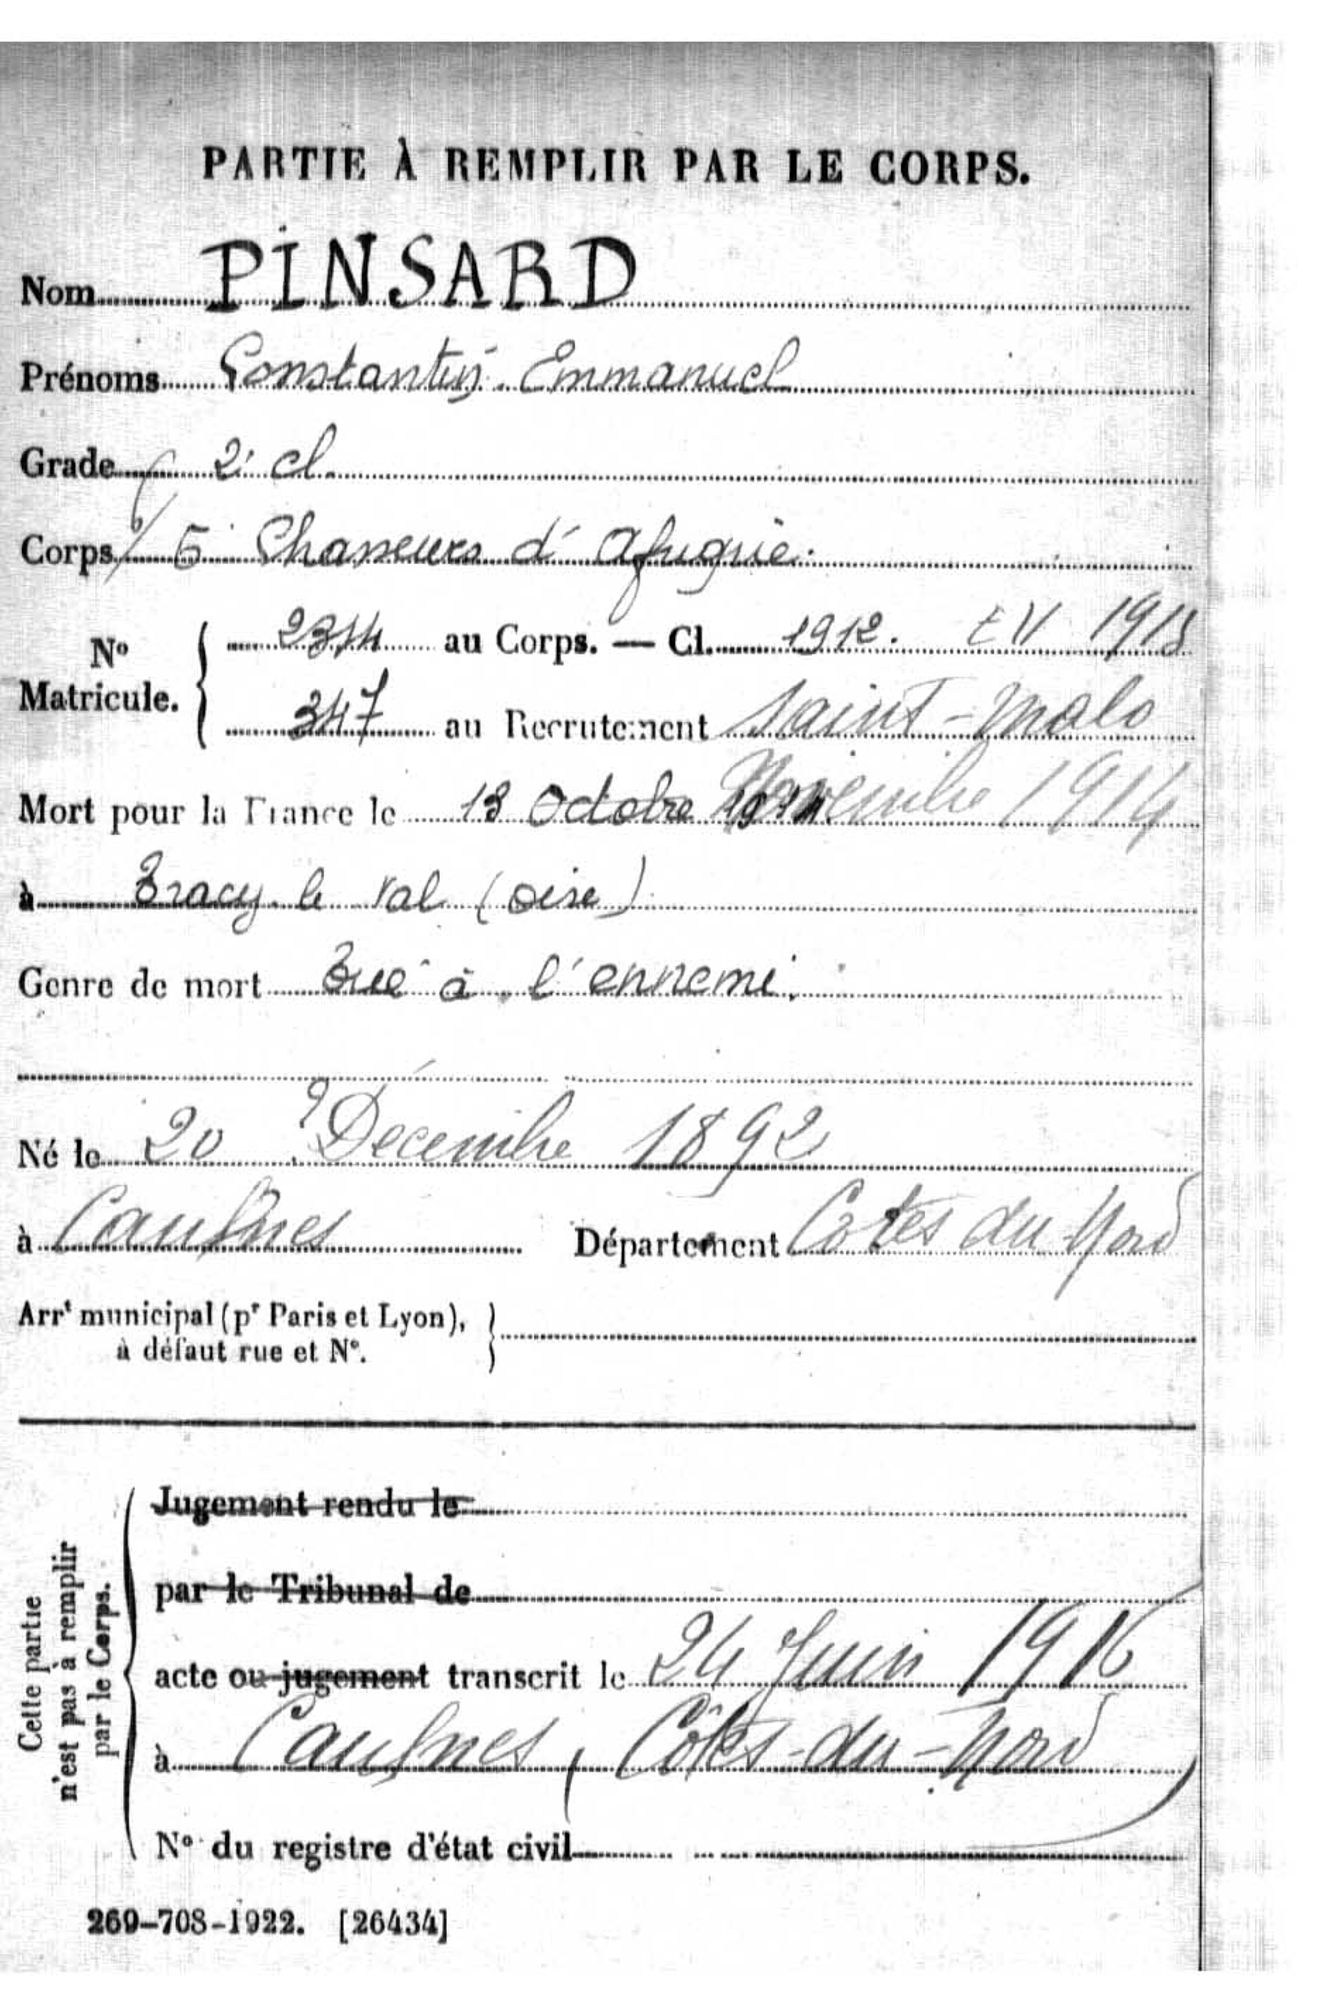 PARTIE À REMPLIR PAR LE CORPS.
Nom PINSARD
Prénoms Constantin Emmanuel
Grade 2e cl.
Corps 5e Chasseurs d'Afrique.
No Matricule. 2314 au Corps. — Cl. 1912. EV 1913
347 au Recrutement Saint-Malo
Mort pour la France le 13 Octobre 1914. Novembre 1914
à Tracy le Val (Oise)
Genre de mort Tué à l'ennemi.
Né le 20 Décembre 1892
à Caulnes Département Côtes du Nord
Arrt municipal (pr Paris et Lyon),
à défaut rue et No.
Cette partie
n'est pas à remplir
par le Corps.
Jugement rendu le
par le Tribunal de
acte ou jugement transcrit le 24 Juin 1916
à Caulnes, Côtes-du-Nord
No du registre d'état civil
269-708-1922. [26434]